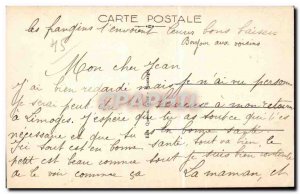 CARTE POSTALE
les frangins t'envoient leurs bons baisers
Bonjour aux voisins
45
Mon cher Jean
J'ai bien regardé mais je n'ai vu personne
Je serai peut à mon retour
à Limoges. J'espère que tu as source qui t'es
nécessaire et que tu es en bonne santé
Ici tout est en bonne santé, tout va bien, le
petit est beau comme tout je suis bien contente
de le voir comme ça La maman, et